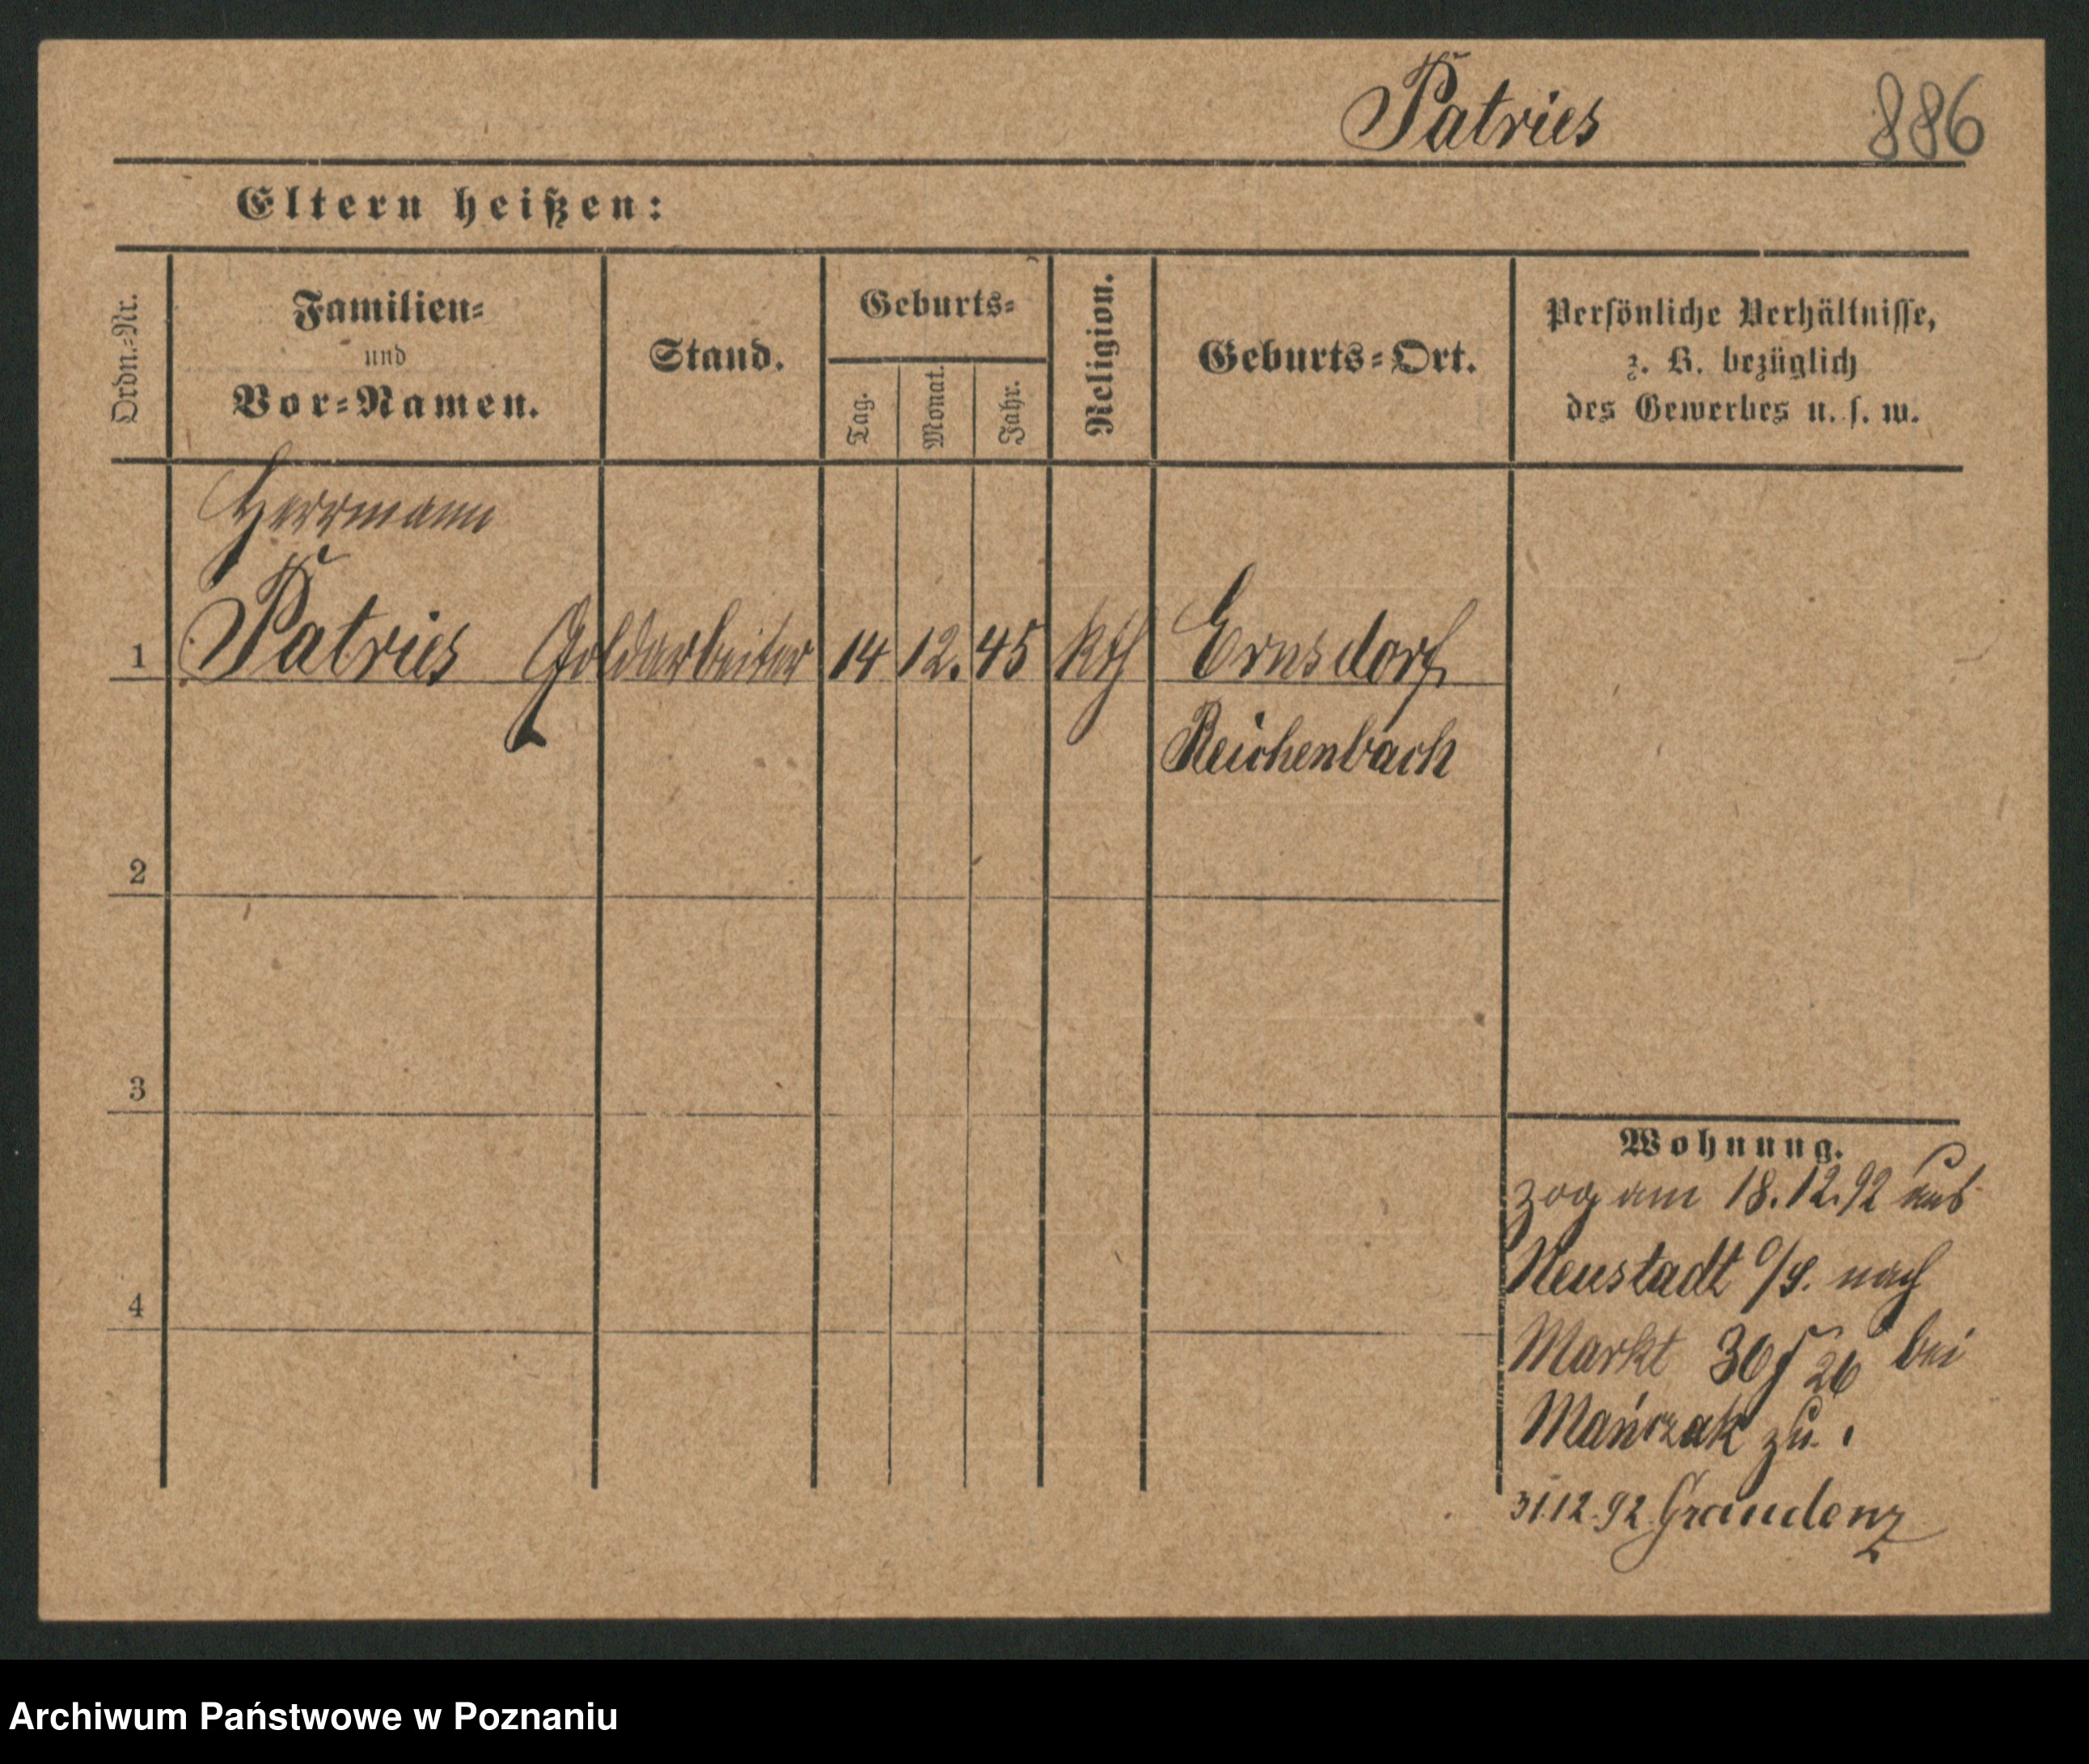 Patries 886
Eltern heißen:
Ordn.-Nr.
Familien-
und
Vor-Namen.
Stand.
Geburts-
Tag.
Monat.
Jahr.
Religion.
Geburts-Ort.
Persönliche Verhältnisse,
z. B. bezüglich
des Gewerbes u. s. w.
Herrmann
1 Patries Goldarbeiter 14 12. 45 kth Ernsdorf
Reichenbach
2
3
4
Wohnung.
zog am 18.12.92 aus
Neustadt O/S. nach
Markt 30 26 bei
Mańczak zu.
31.12.92 Graudenz
Archiwum Państwowe w Poznaniu